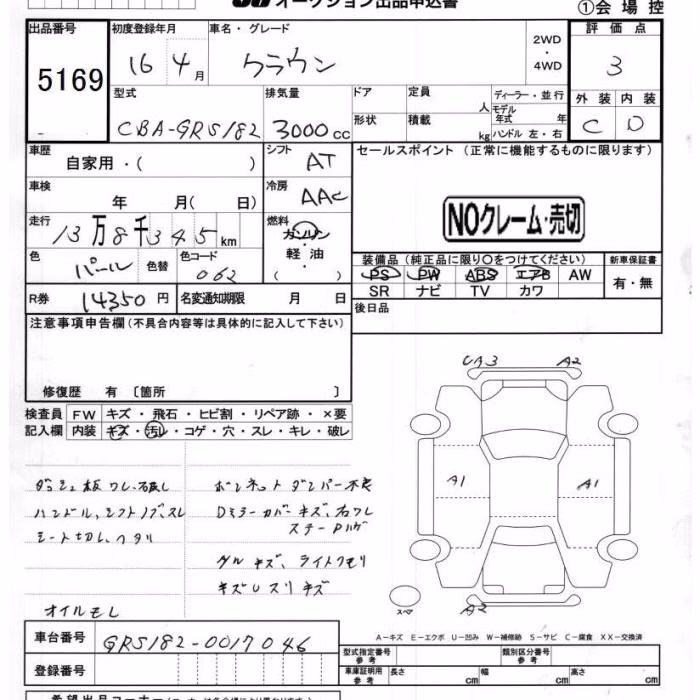 オークション出品申込書 ①会場控
出品番号 初度登録年月 車名・グレード 2WD・4WD 評価点
5169 16 4月 クラウン 3
型式 排気量 ドア 定員 人 ディーラー・並行 外装 内装
CBA-GRS182 3000cc 形状 積載 kg モデル年式 年 ハンドル 左・右 C D
車歴 自家用・( ) シフト AT セールスポイント (正常に機能するものに限ります)
車検 年 月( 日) 冷房 AAC
NOクレーム・売切
走行 13万8千345km 燃料 ガソリン・軽油 ( )
色 パール 色替 色コード 062 装備品(純正品に限り○をつけてください) 新車保証書
PS PW ABS エアB AW 有・無
SR ナビ TV カワ
R券 14350円 名変通知期限 月 日 後日品
注意事項申告欄(不具合内容等は具体的に記入して下さい)
修復歴 有〔箇所 〕
検査員 FW キズ・飛石・ヒビ割・リペア跡・×要
記入欄 内装 キズ・汚レ・コゲ・穴・スレ・キレ・破レ
UA3 A2
A1 A1
ダッシュ板ワレ、破レ ボンネットダンパー不良
ハンドル、シフトノブ、スレ Dミラーカバーキズ、右ワレ
シート切レ、ヘタリ ステーPハゲ
グルキズ、ライトクモリ
キズUスリキズ
オイルモレ スペア A2
A-キズ E-エクボ U-凹み W-補修跡 S-サビ C-腐食 XX-交換済
車台番号 GRS182-0017046 型式指定番号 参考 類別区分番号 参考
登録番号 車庫証明用 参考 長さ cm 幅 cm 高さ cm